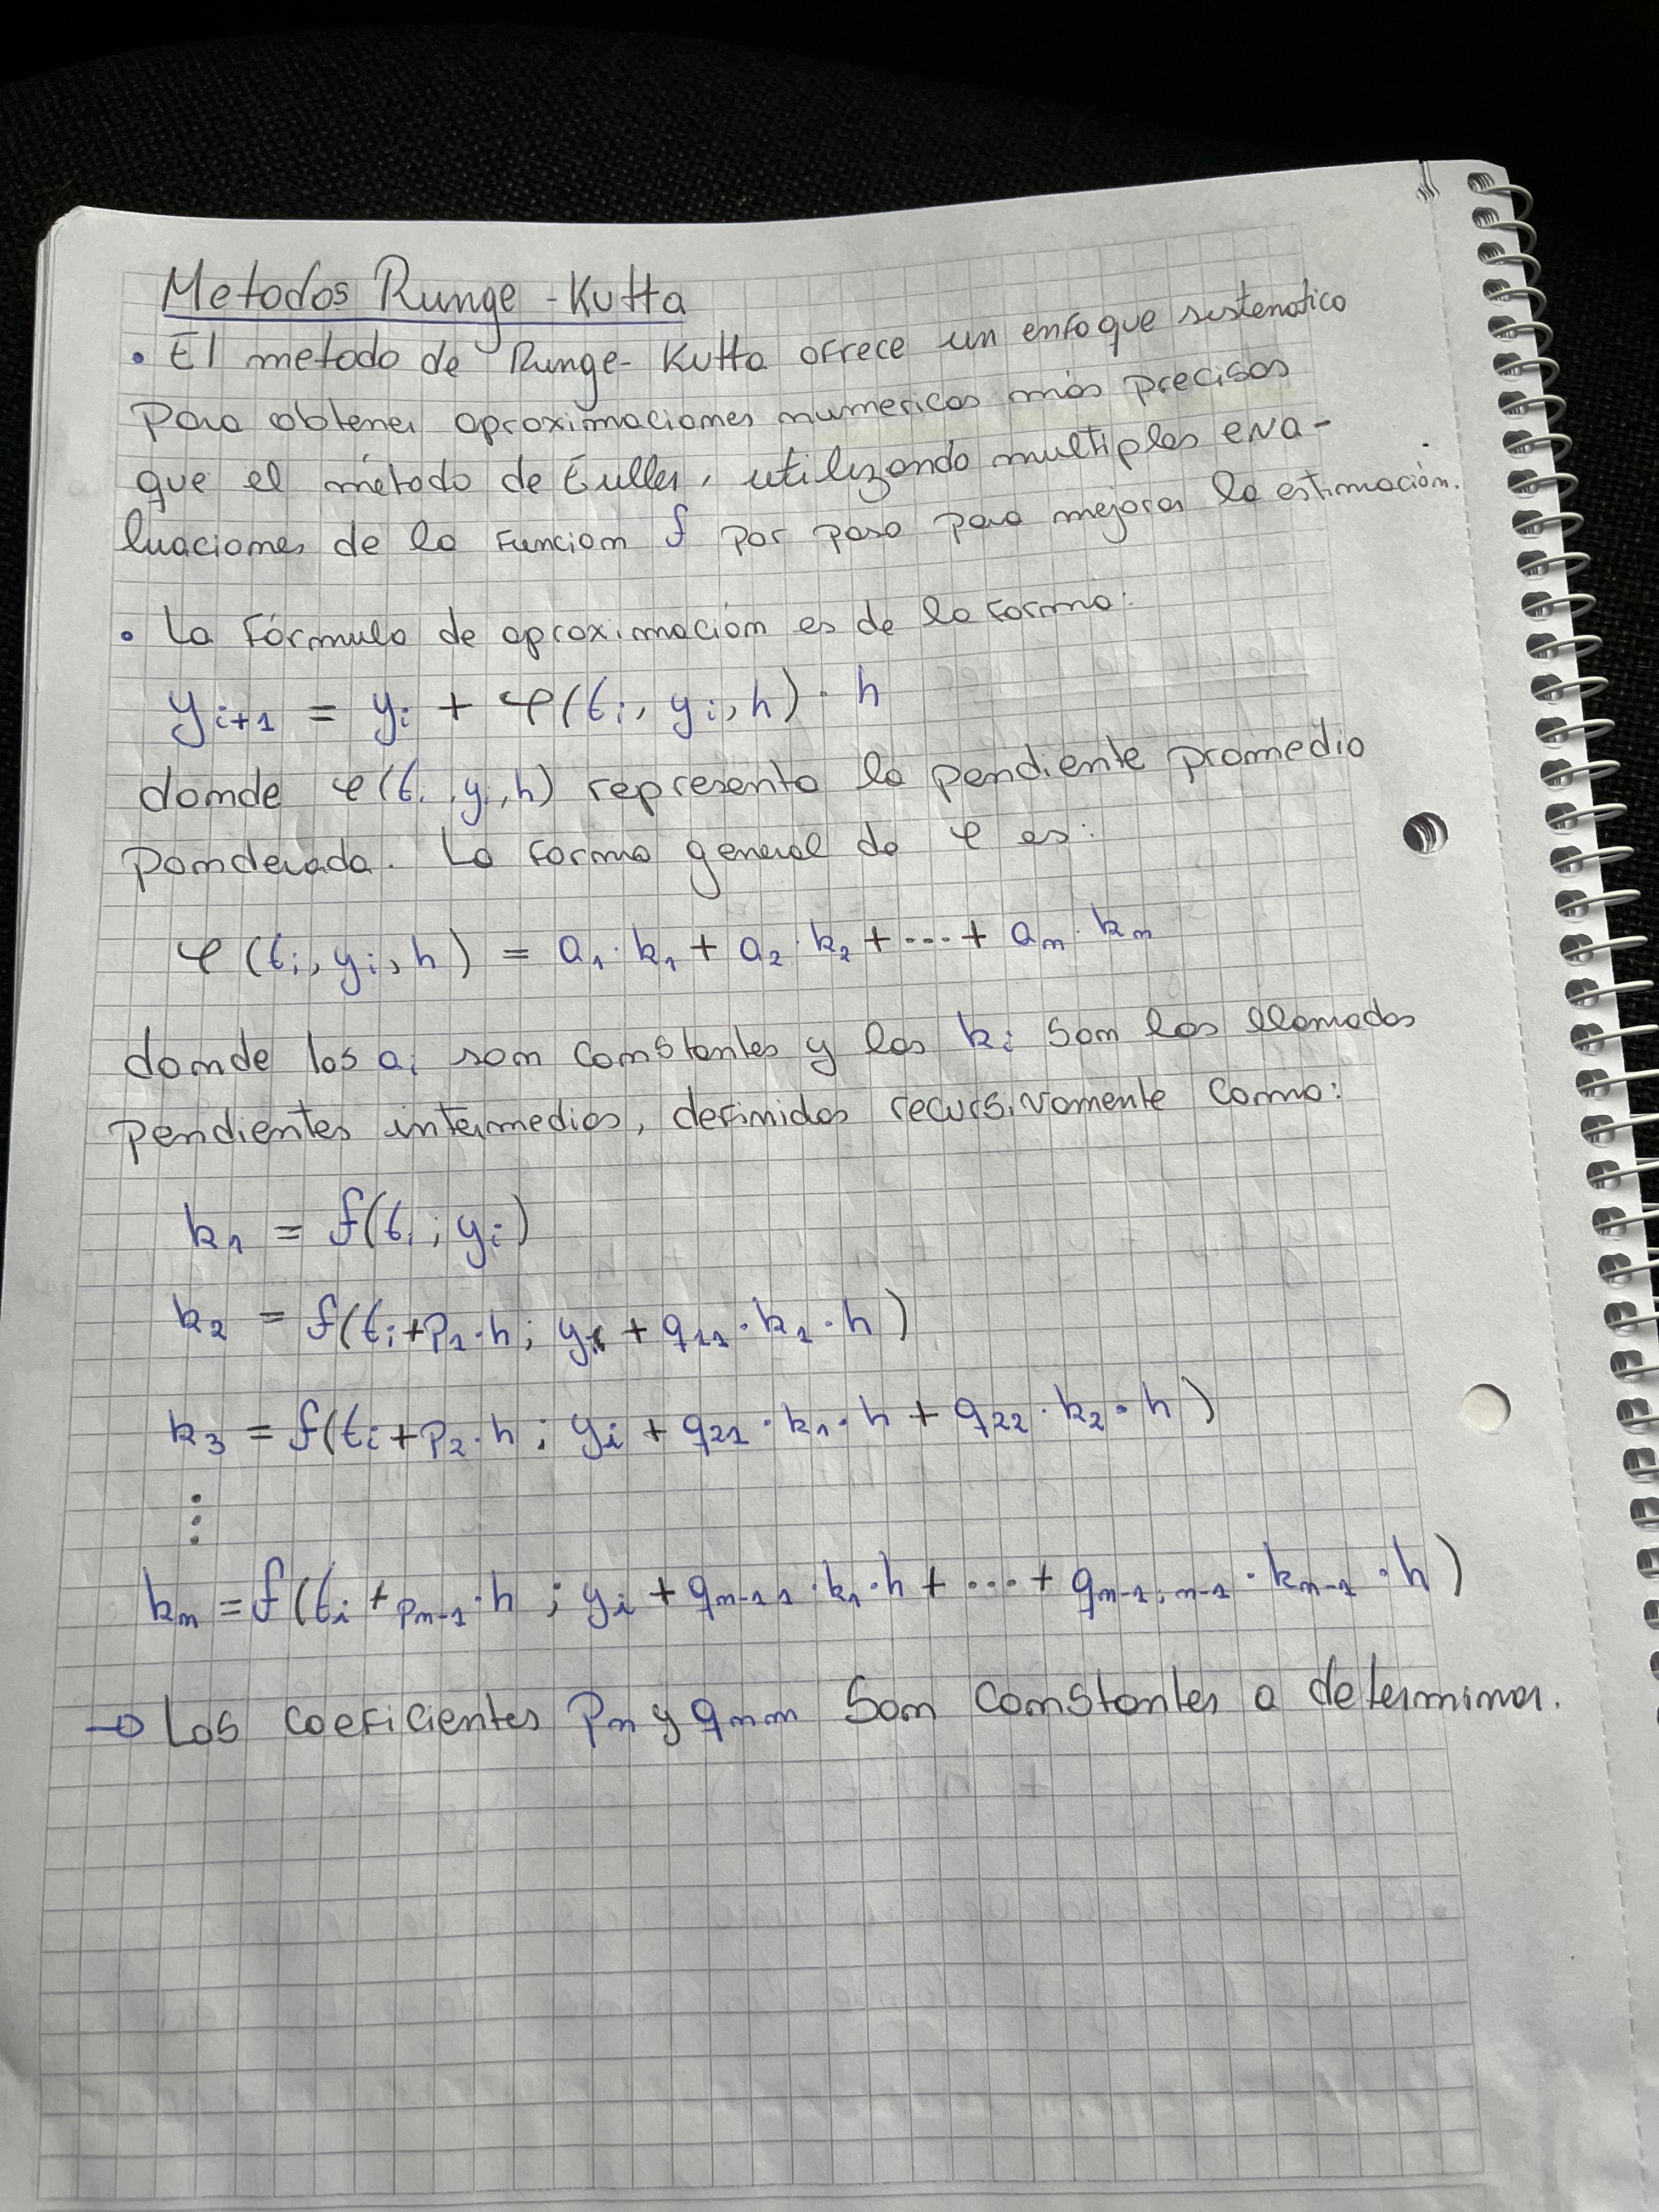 Metodos Runge-Kutta
• El metodo de Runge-Kutta ofrece un enfoque sistematico
para obtener aproximaciones numericas más precisas
que el método de Euller, utilizando multiples eva-
luaciones de la funcion f por paso para mejorar la estimación.
• La fórmula de aproximación es de la forma:
y_{i+1} = y_i + φ(t_i, y_i, h) · h
donde φ(t_i, y_i, h) representa la pendiente promedio
ponderada. La forma general de φ es:
φ(t_i, y_i, h) = a_1 · k_1 + a_2 · k_2 + ... + a_n · k_n
donde los a_i son constantes y los k_i son las llamadas
pendientes intermedias, definidas recursivamente como:
k_1 = f(t_i ; y_i)
k_2 = f(t_i + p_1 · h ; y_i + q_{11} · k_1 · h)
k_3 = f(t_i + p_2 · h ; y_i + q_{21} · k_1 · h + q_{22} · k_2 · h)
⋮
k_n = f(t_i + p_{n-1} · h ; y_i + q_{n-1 1} · k_1 · h + ... + q_{n-1; n-1} · k_{n-1} · h)
→ Los coeficientes p_n y q_{nm} son constantes a determinar.